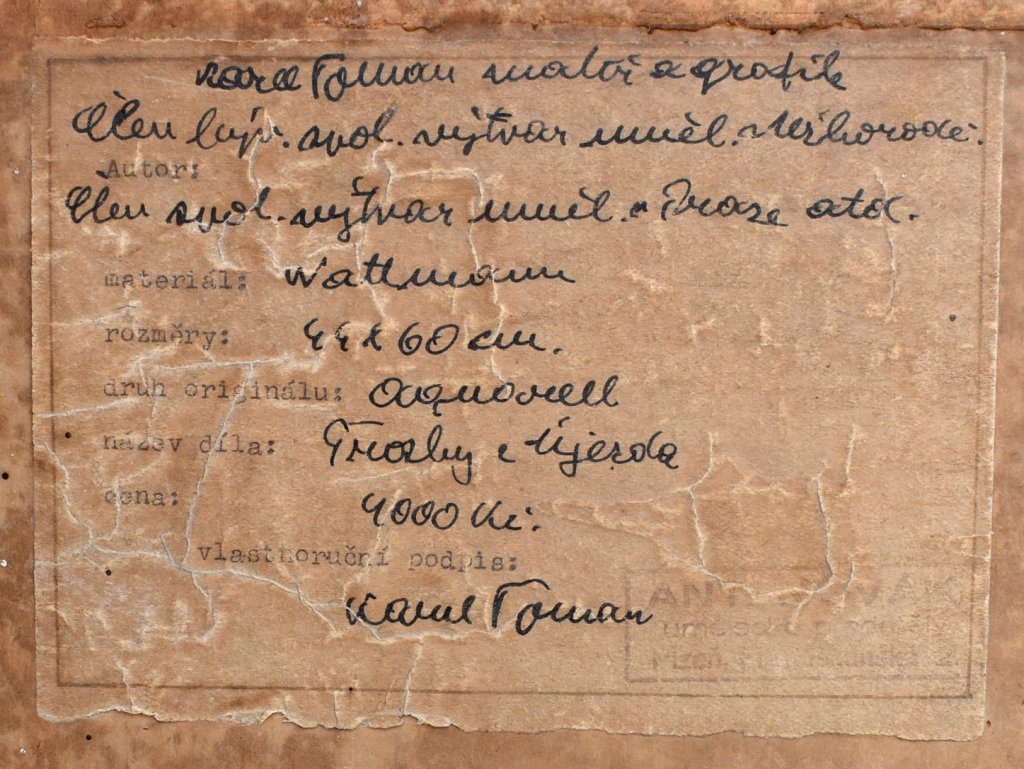 Karel Toman malíř a grafik
Člen býv. spol. výtvar uměl. v Užhorodě.
Autor:
Člen spol. výtvar uměl. v Praze atd.
materiál: Wattmann
rozměry: 44x60 cm.
druh originálu: Aquarell
název díla: Trosky z Újezda
cena: 4000 Kč.
vlastnoruční podpis:
Karel Toman
Plzeň,